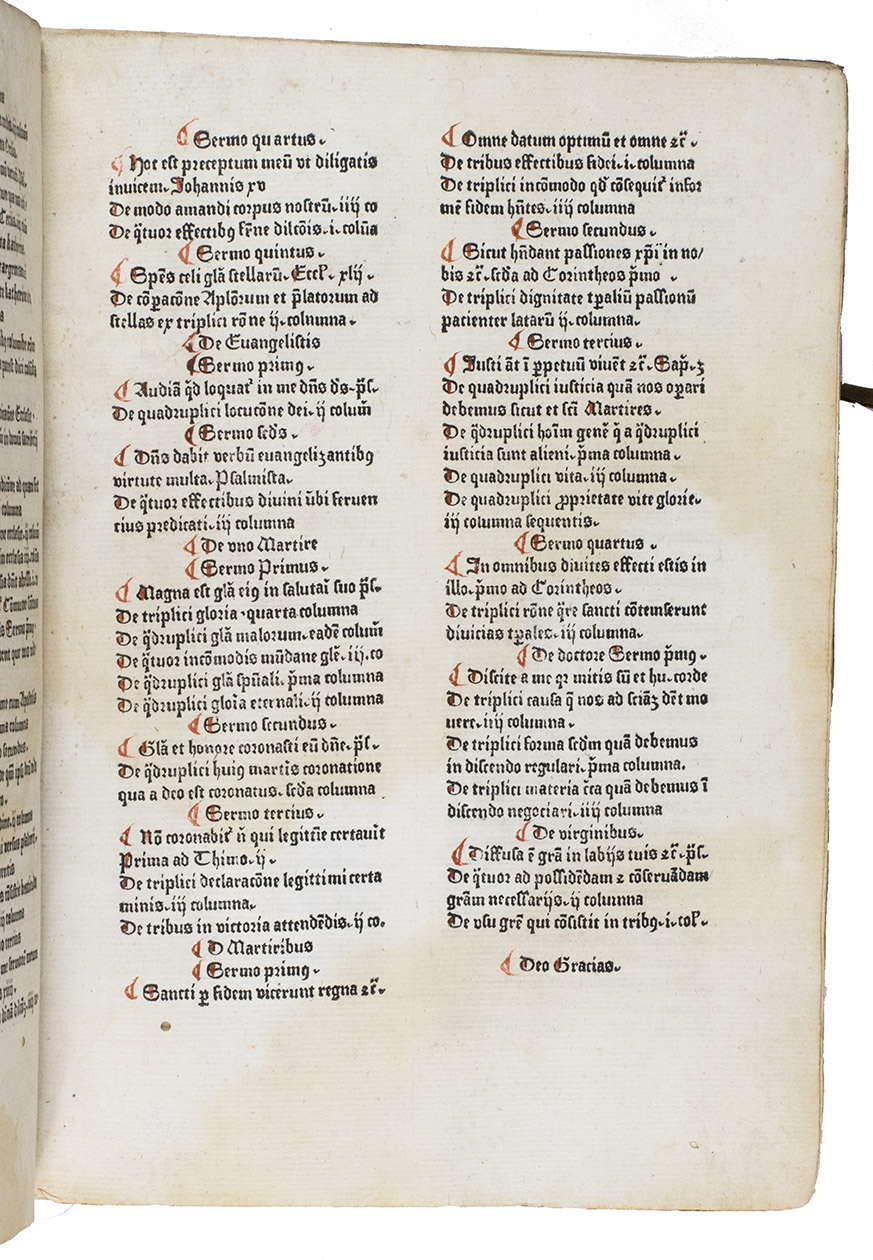 ¶ Sermo quartus.
¶ Hoc est preceptum meū vt diligatis
inuicem. Johannis xv
De modo amandi corpus nostrū. iiij co
De q̄tuor effectibꝰ
¶ Sermo quintus.
¶ Spēs celi glā stellarū. Eccl. xlij.
De cōꝑacōne Aplōrum et p̄latorum ad
stellas ex triplici rōne ij. columna.
¶ De Euangelistis
¶ Sermo primꝰ.
¶ Audiā q̄d loquat᷑ in me dn̄s ds̄. ps̄.
De quadruplici locucōne dei. ij colum̄
¶ Sermo scds̄.
¶ Dn̄s dabit verbū euangelizantibꝰ
virtute multa. Psalmista.
De q̄tuor effectibus diuini v̄bi feruen
cius predicati. iij columna
¶ De vno Martire
¶ Sermo Primus.
¶ Magna est glā eiꝰ in salutaī suo ps̄.
De triplici gloria. quarta columna
De q̄druplici glā malorum. eadē colum̄
De q̄tuor incōmodis mūdane glē. iij. co
De q̄druplici glā spūali. p̄ma columna
De q̄druplici gloīa eternali. ij columna
¶ Sermo secundus.
¶ Glā et honore coronasti eū dn̄e. ps̄.
De q̄druplici huiꝰ martīs coronatione
qua a deo est coronatus. scd̄a columna
¶ Sermo tercius.
¶ Nō coronabit᷑ n̄ qui legittīe certauīt
Prima ad Thimo. ij.
De triplici declaracōne legittimi certa
minis. iij columna.
De tribus in victoria attendēdis. ij co.
¶ D Martiribus
¶ Sermo primꝰ.
¶ Sancti ꝑ fidem vicerunt regna ⁊c̄.
¶ Omne datum optimū et omne ⁊c̄.
De tribus effectibus fidei. i. columna
De triplici incōmodo qd̄ cōsequit᷑ infor
mē fidem hn̄tes. iiij columna
¶ Sermo secundus.
¶ Sicut hn̄dant passiones xp̄i in no/
bis ⁊c̄. scd̄a ad Corintheos p̄mo.
De triplici dignitate tꝑaliū passionū
pacienter latarū ij. columna.
¶ Sermo tercius.
¶ Iusti āt ī ꝑpetuū viuēt ⁊c̄. Sap̄. ꝫ
De quadruplici iusticia quā nos oꝑari
debemus sicut et scī Martires.
De q̄druplici hoīm genē q̄ a q̄druplici
iusticia sunt alieni. p̄ma columna.
De quadruplici vita. iij columna.
De quadruplici ꝓprietate vite glorie.
iij columna sequentis.
¶ Sermo quartus.
¶ In omnibus diuites effecti estis in
illo. p̄mo ad Corintheos.
De triplici rōne q̄re sancti cōtemserunt
diuicias tꝑales. iij columna.
¶ De doctore Sermo p̄mꝰ.
¶ Discite a me qr mitis sū et hu. corde
De triplici causa q̄ nos ad sciāꝫ dēt mo
uere. iiij columna.
De triplici forma scd̄m quā debemus
in discendo regulari. p̄ma columna.
De triplici materia c̄ca quā debemus ī
discendo negociari. iiij columna
¶ De virginibus.
¶ Diffusa ē grā in labijs tuis ⁊c̄. ps̄.
De q̄tuor ad possidēdam ⁊ cōseruādam
grām necessarijs. ij columna
De vsu grē qui cōsistit in tribꝰ. i. col.
¶ Deo Gracias.